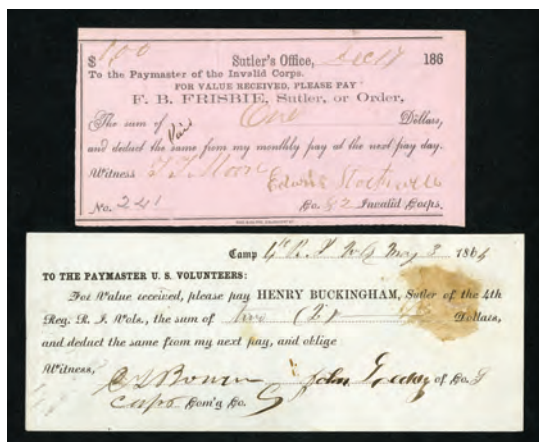 $ 1.00 Sutler's Office, Dec 17 186
To the Paymaster of the Invalid Corps.
FOR VALUE RECEIVED, PLEASE PAY
F. B. FRISBIE, Sutler, or Order,
The sum of One Dollars,
Paid
and deduct the same from my monthly pay at the next pay day.
Witness Moore
Edwin Stockwell
No. 241 Co. 82 Invalid Corps.
Camp 4th R. I. May 3 1864
TO THE PAYMASTER U. S. VOLUNTEERS:
For Value received, please pay HENRY BUCKINGHAM, Sutler of the 4th
Reg. R. I. Vols., the sum of two (2) Dollars,
and deduct the same from my next pay, and oblige
Witness,
Bowen John of Co. G
Capt Com'g Co. G